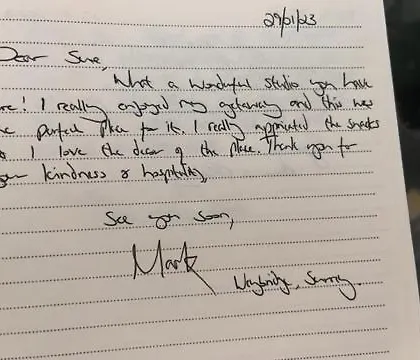 29/01/23
Dear Sue,
What a wonderful studio you have
re! I really enjoyed my getaway and this was
e perfect place for it. I really appriated the snacks
I love the decor of the place. Thank you for
your kindness & hospitality,
See you soon,
Mark
Weybridge, Surrey.